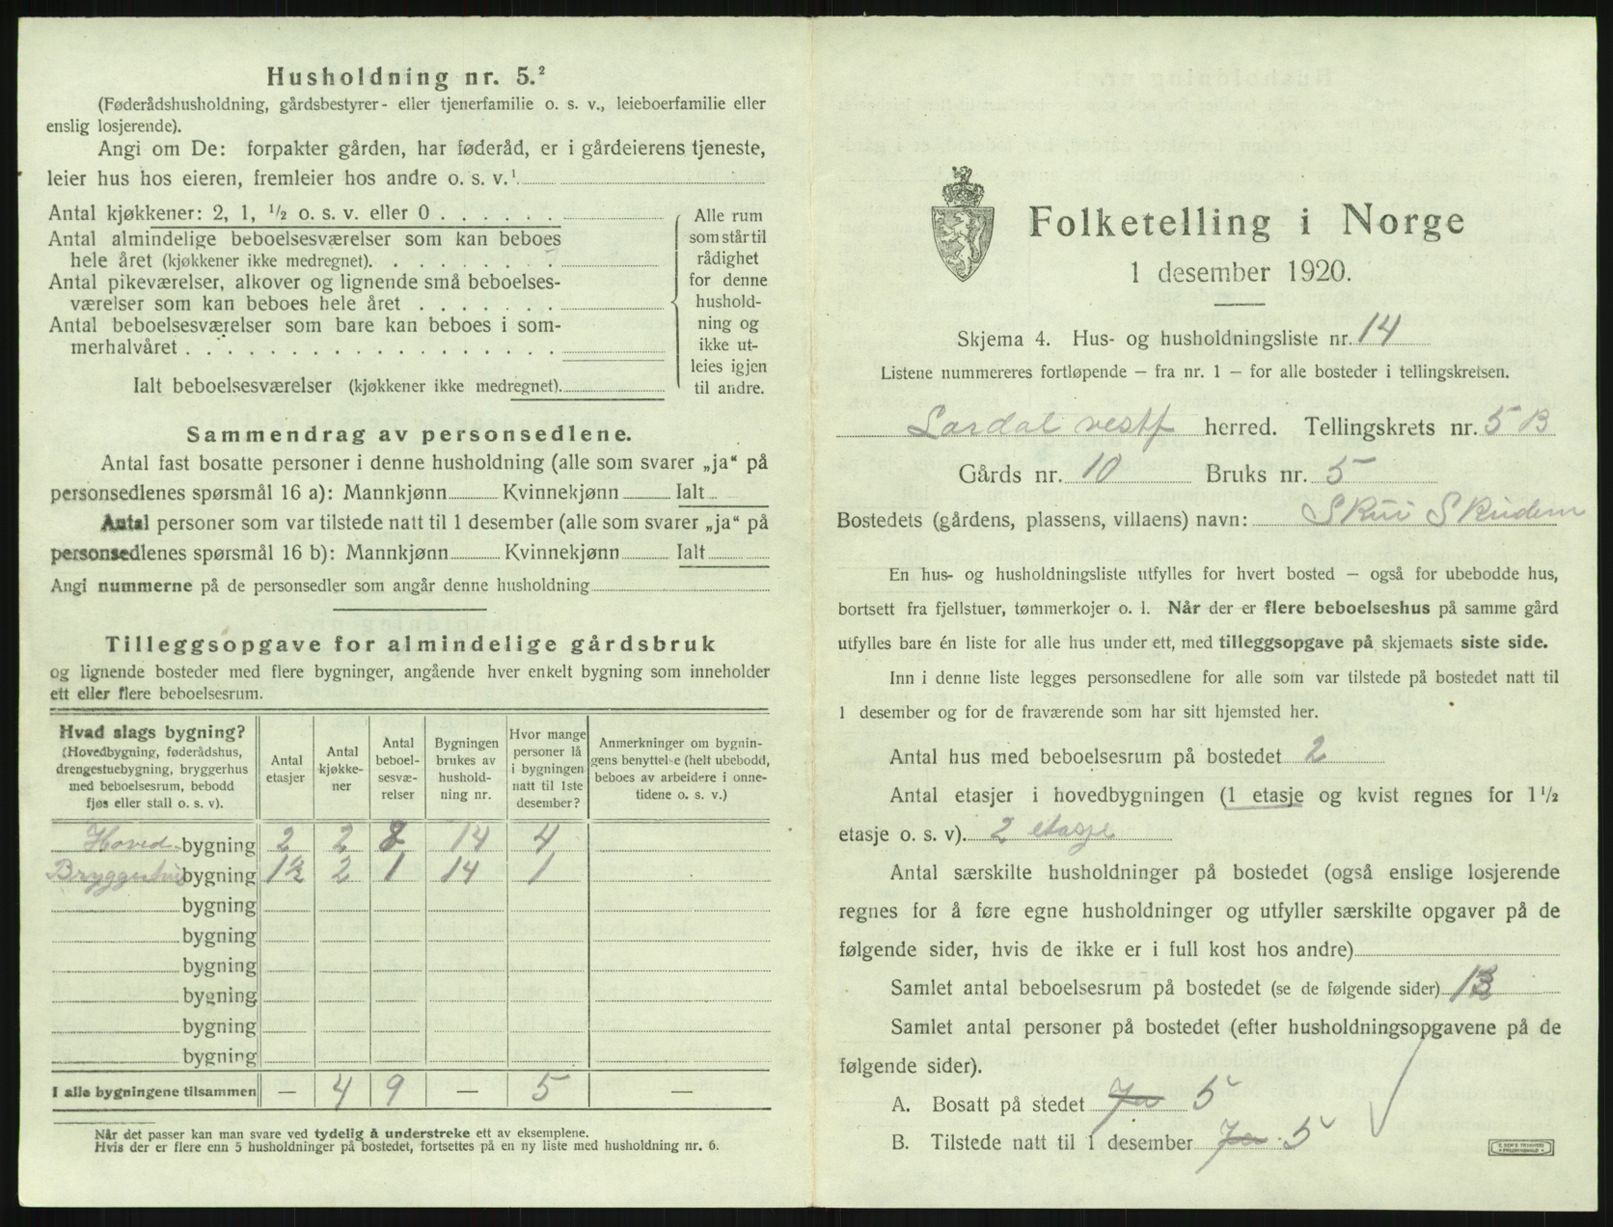 Husholdning nr. 5.²
(Føderådshusholdning, gårdsbestyrer- eller tjenerfamilie o. s. v., leieboerfamilie eller
enslig losjerende).
Angi om De: forpakter gården, har føderåd, er i gårdeierens tjeneste,
leier hus hos eieren, fremleier hos andre o. s. v.¹
Antal kjøkkener: 2, 1, ½ o. s. v. eller 0
Antal almindelige beboelsesværelser som kan beboes
hele året (kjøkkener ikke medregnet).
Antal pikeværelser, alkover og lignende små beboelses-
værelser som kan beboes hele året
Antal beboelsesværelser som bare kan beboes i som-
merhalvåret
Ialt beboelsesværelser (kjøkkener ikke medregnet).
Alle rum
som står til
rådighet
for denne
hushold-
ning og
ikke ut-
leies igjen
til andre.
Sammendrag av personsedlene.
Antal fast bosatte personer i denne husholdning (alle som svarer „ja“ på
personsedlenes spørsmål 16 a): Mannkjønn Kvinnekjønn Ialt
Antal personer som var tilstede natt til 1 desember (alle som svarer „ja“ på
personsedlenes spørsmål 16 b): Mannkjønn Kvinnekjønn Ialt
Angi nummerne på de personsedler som angår denne husholdning
Tilleggsopgave for almindelige gårdsbruk
og lignende bosteder med flere bygninger, angående hver enkelt bygning som inneholder
ett eller flere beboelsesrum.
Hvad slags bygning?
(Hovedbygning, føderådshus,
drengestuebygning, bryggerhus
med beboelsesrum, bebodd
fjøs eller stall o. s. v).
Antal
etasjer
Antal
kjøkke-
ner
Antal
beboel-
sesvæ-
relser
Bygningen
brukes av
hushold-
ning nr.
Hvor mange
personer lå
i bygningen
natt til 1ste
desember?
Anmerkninger om bygnin-
gens benyttelse (helt ubebodd,
beboes av arbeidere i onne-
tidene o. s. v.)
Hoved bygning 2 2 8 14 4
bygning 1½ 2 1 14 1
bygning
bygning
bygning
bygning
bygning
bygning
I alle bygningene tilsammen — 4 9 — 5 —
Når det passer kan man svare ved tydelig å understreke ett av eksemplene.
Hvis der er flere enn 5 husholdninger på bostedet, fortsettes på en ny liste med husholdning nr. 6.
Folketelling i Norge
1 desember 1920.
Skjema 4. Hus- og husholdningsliste nr. 14
Listene nummereres fortløpende — fra nr. 1 — for alle bosteder i tellingskretsen.
Lardal vestf herred. Tellingskrets nr. 5 B
Gårds nr. 10 Bruks nr. 5
Bostedets (gårdens, plassens, villaens) navn: Skui
En hus- og husholdningsliste utfylles for hvert bosted — også for ubebodde hus,
bortsett fra fjellstuer, tømmerkojer o. l. Når der er flere beboelseshus på samme gård
utfylles bare én liste for alle hus under ett, med tilleggsopgave på skjemaets siste side.
Inn i denne liste legges personsedlene for alle som var tilstede på bostedet natt til
1 desember og for de fraværende som har sitt hjemsted her.
Antal hus med beboelsesrum på bostedet 2
Antal etasjer i hovedbygningen (1 etasje og kvist regnes for 1½
etasje o. s. v). 2 etasje
Antal særskilte husholdninger på bostedet (også enslige losjerende
regnes for å føre egne husholdninger og utfyller særskilte opgaver på de
følgende sider, hvis de ikke er i full kost hos andre)
Samlet antal beboelsesrum på bostedet (se de følgende sider) 13
Samlet antal personer på bostedet (efter husholdningsopgavene på de
følgende sider).
A. Bosatt på stedet Ja 5
B. Tilstede natt til 1 desember Ja 5